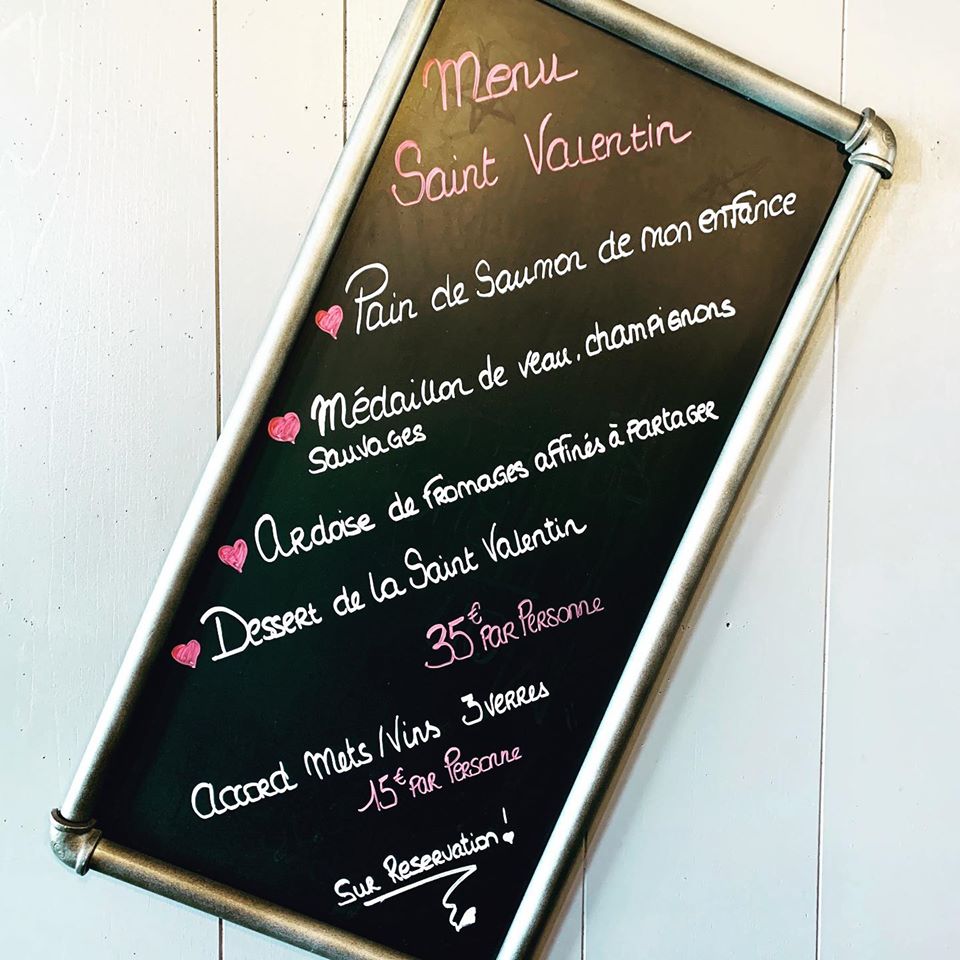 Menu
Saint Valentin
Pain de Saumon de mon enfance
Médaillon de veau, champignons
sauvages
Ardoise de fromages affinés à partager
Dessert de la Saint Valentin
35€ par Personne
Accord Mets/Vins 3 verres
15€ par Personne
Sur Reservation!